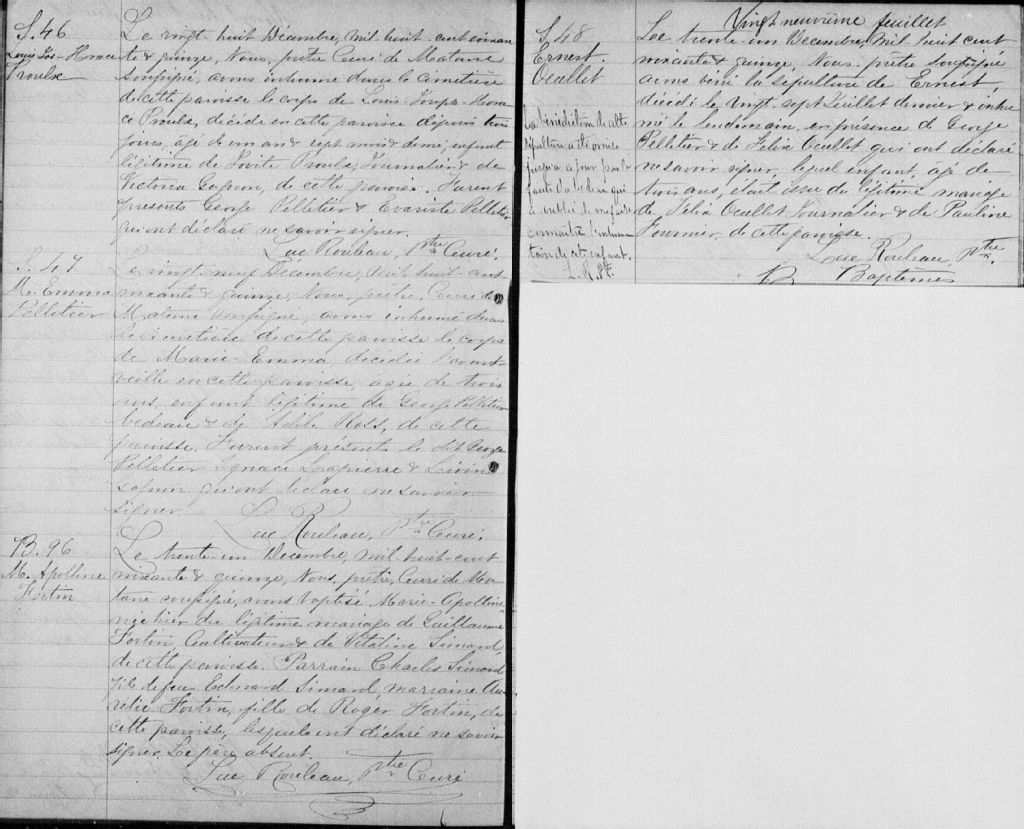 S. 46
Louis Jos. Horace
Proulx
Le vingt huit Décembre, mil huit-cent soixan
te & quinze, Nous, prêtre Curé de Matane
soussigné, avons inhumé dans le cimetière
de cette paroisse le corps de Louis-Joseph-Hora
ce Proulx, décédé en cette paroisse depuis trois
jours, agé de un an & sept mois & demi, enfant
légitime de Jovite Proulx, Journalier & de
Victoria Gagnon, de cette paroisse. Furent
présents George Pelletier & Evariste Pelletier
qui ont déclaré ne savoir signer.
Luc Rouleau, Ptre Curé.
S. 47
M. Emma
Pelletier
Le vingt neuf Décembre, mil huit cent
soixante & quinze, Nous, prêtre, Curé de
Matane soussigné, avons inhumé dans
le cimetière de cette paroisse le corps
de Marie-Emma décédée l'avant
veille en cette paroisse, agée de trois
ans, enfant légitime de George Pelletier
bedeau & de Adèle Ross, de cette
paroisse. Furent présents le dit George
Pelletier Ignace Lapierre &
Gagnon qui ont déclaré ne savoir
signer.
Luc Rouleau, Ptre Curé.
B. 96
M. Apolline
Fortin
Le trente-un Décembre, mil huit-cent
soixante & quinze, Nous, prêtre, Curé de Ma
tane soussigné, avons baptisé Marie-Apolline
née hier du légitime mariage de Guillaume
Fortin, Cultivateur & de Vitaline Simard,
de cette paroisse. Parrain Charles Simard
fils de feu Edouard Simard, marraine Au
rélie Fortin, fille de Roger Fortin, de
cette paroisse, lesquels ont déclaré ne savoir
signer. Le père absent.
Luc Rouleau, Ptre Curé
Vingt neuvième feuillet
S. 48
Ernest.
Ouellet
La bénédiction de cette
sépulture a été omise
jusqu'à ce jour par la
faute du bedeau qui
a oublié de me faire
connaître l'inhuma
tion de cet enfant.
L. R. Ptre
Le trente-un Décembre, mil huit cent
soixante & quinze, Nous prêtre soussigné
avons béni la sépulture de Ernest,
décédé le vingt-sept Juillet dernier & inhu
mé le lendemain, en présence de George
Pelletier & de Félix Ouellet qui ont déclaré
ne savoir signer, lequel enfant, agé de
trois ans, était issu du légitime mariage
de Félix Ouellet Journalier & de Pauline
Fournier, de cette paroisse.
Luc Rouleau, Ptre.
Baptêmes